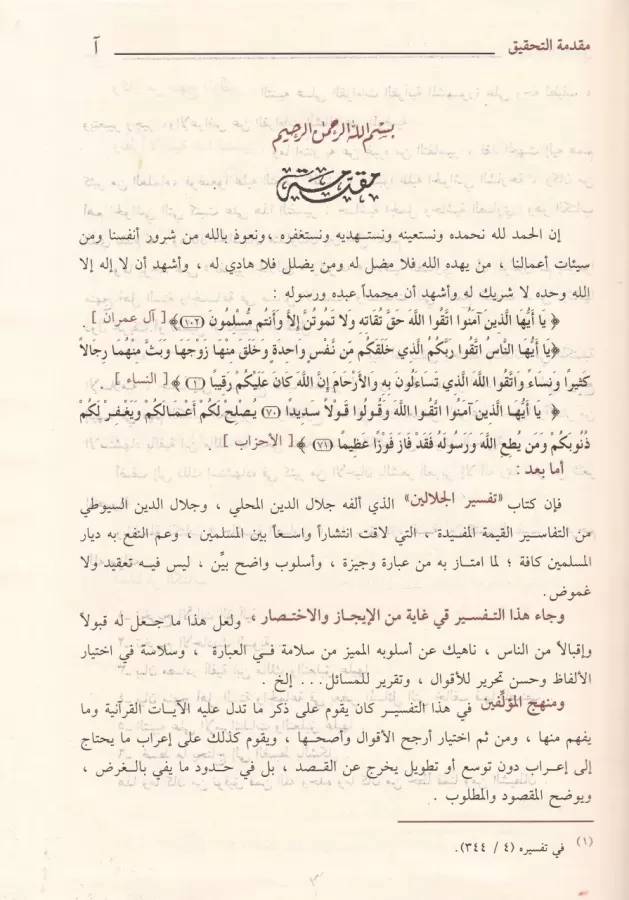 مقدمة التحقيق أ
بسم الله الرحمن الرحيم
مقدمة
إن الحمد لله نحمده ونستعينه ونستهديه ونستغفره ، ونعوذ بالله من شرور أنفسنا ومن
سيئات أعمالنا ، من يهده الله فلا مضل له ومن يضلل فلا هادي له ، وأشهد أن لا إله إلا
الله وحده لا شريك له وأشهد أن محمداً عبده ورسوله :
﴿ يَا أَيُّهَا الَّذِينَ آمَنُوا اتَّقُوا اللَّهَ حَقَّ تُقَاتِهِ وَلَا تَمُوتُنَّ إِلَّا وَأَنتُم مُّسْلِمُونَ (١٠٢)﴾[ آل عمران ] .
﴿يَا أَيُّهَا النَّاسُ اتَّقُوا رَبَّكُمُ الَّذِي خَلَقَكُم مِّن نَّفْسٍ وَاحِدَةٍ وَخَلَقَ مِنْهَا زَوْجَهَا وَبَثَّ مِنْهُمَا رِجَالاً
كَثِيرًا وَنِسَاءً وَاتَّقُوا اللَّهَ الَّذِي تَسَاءَلُونَ بِهِ وَالأَرْحَامَ إِنَّ اللَّهَ كَانَ عَلَيْكُمْ رَقِيبًا (١) ﴾[ النساء ]
﴿ يَا أَيُّهَا الَّذِينَ آمَنُوا اتَّقُوا اللَّهَ وَقُولُوا قَوْلًا سَدِيدًا (٧٠) يُصْلِحْ لَكُمْ أَعْمَالَكُمْ وَيَغْفِرْ لَكُمْ
ذُنُوبَكُمْ وَمَن يُطِعِ اللَّهَ وَرَسُولَهُ فَقَدْ فَازَ فَوْزًا عَظِيمًا (٧١) ﴾[ الأحزاب ] .
أما بعد :
فإن كتاب "تفسير الجلالين" الذي ألفه جلال الدين المحلي ، وجلال الدين السيوطي
من التفاسير القيمة المفيدة ، التي لاقت انتشاراً واسعاً بين المسلمين ، وعم النفع به ديار
المسلمين كافة ؛ لما امتاز به من عبارة وجيزة ، وأسلوب واضح بيِّن ، ليس فيه تعقيد ولا
غموض.
وجاء هذا التفسير قي غاية من الإيجاز والاختصار ، ولعل هذا ما جعل له قبولاً
وإقبالاً من الناس ، ناهيك عن أسلوبه المميز من سلامة في العبارة ، وسلاسة في اختيار
الألفاظ وحسن تحرير للأقوال ، وتقرير للمسائل... إلخ .
ومنهج المؤلِّفين في هذا التفسير كان يقوم على ذكر ما تدل عليه الآيات القرآنية وما
يفهم منها ، ومن ثم اختيار أرجح الأقوال وأصحها ، ويقوم كذلك على إعراب ما يحتاج
إلى إعراب دون توسع أو تطويل يخرج عن القصد ، بل في حدود ما يفي بالغرض ،
ويوضح المقصود والمطلوب .
(١) في تفسيره (٤ / ٣٤٤).